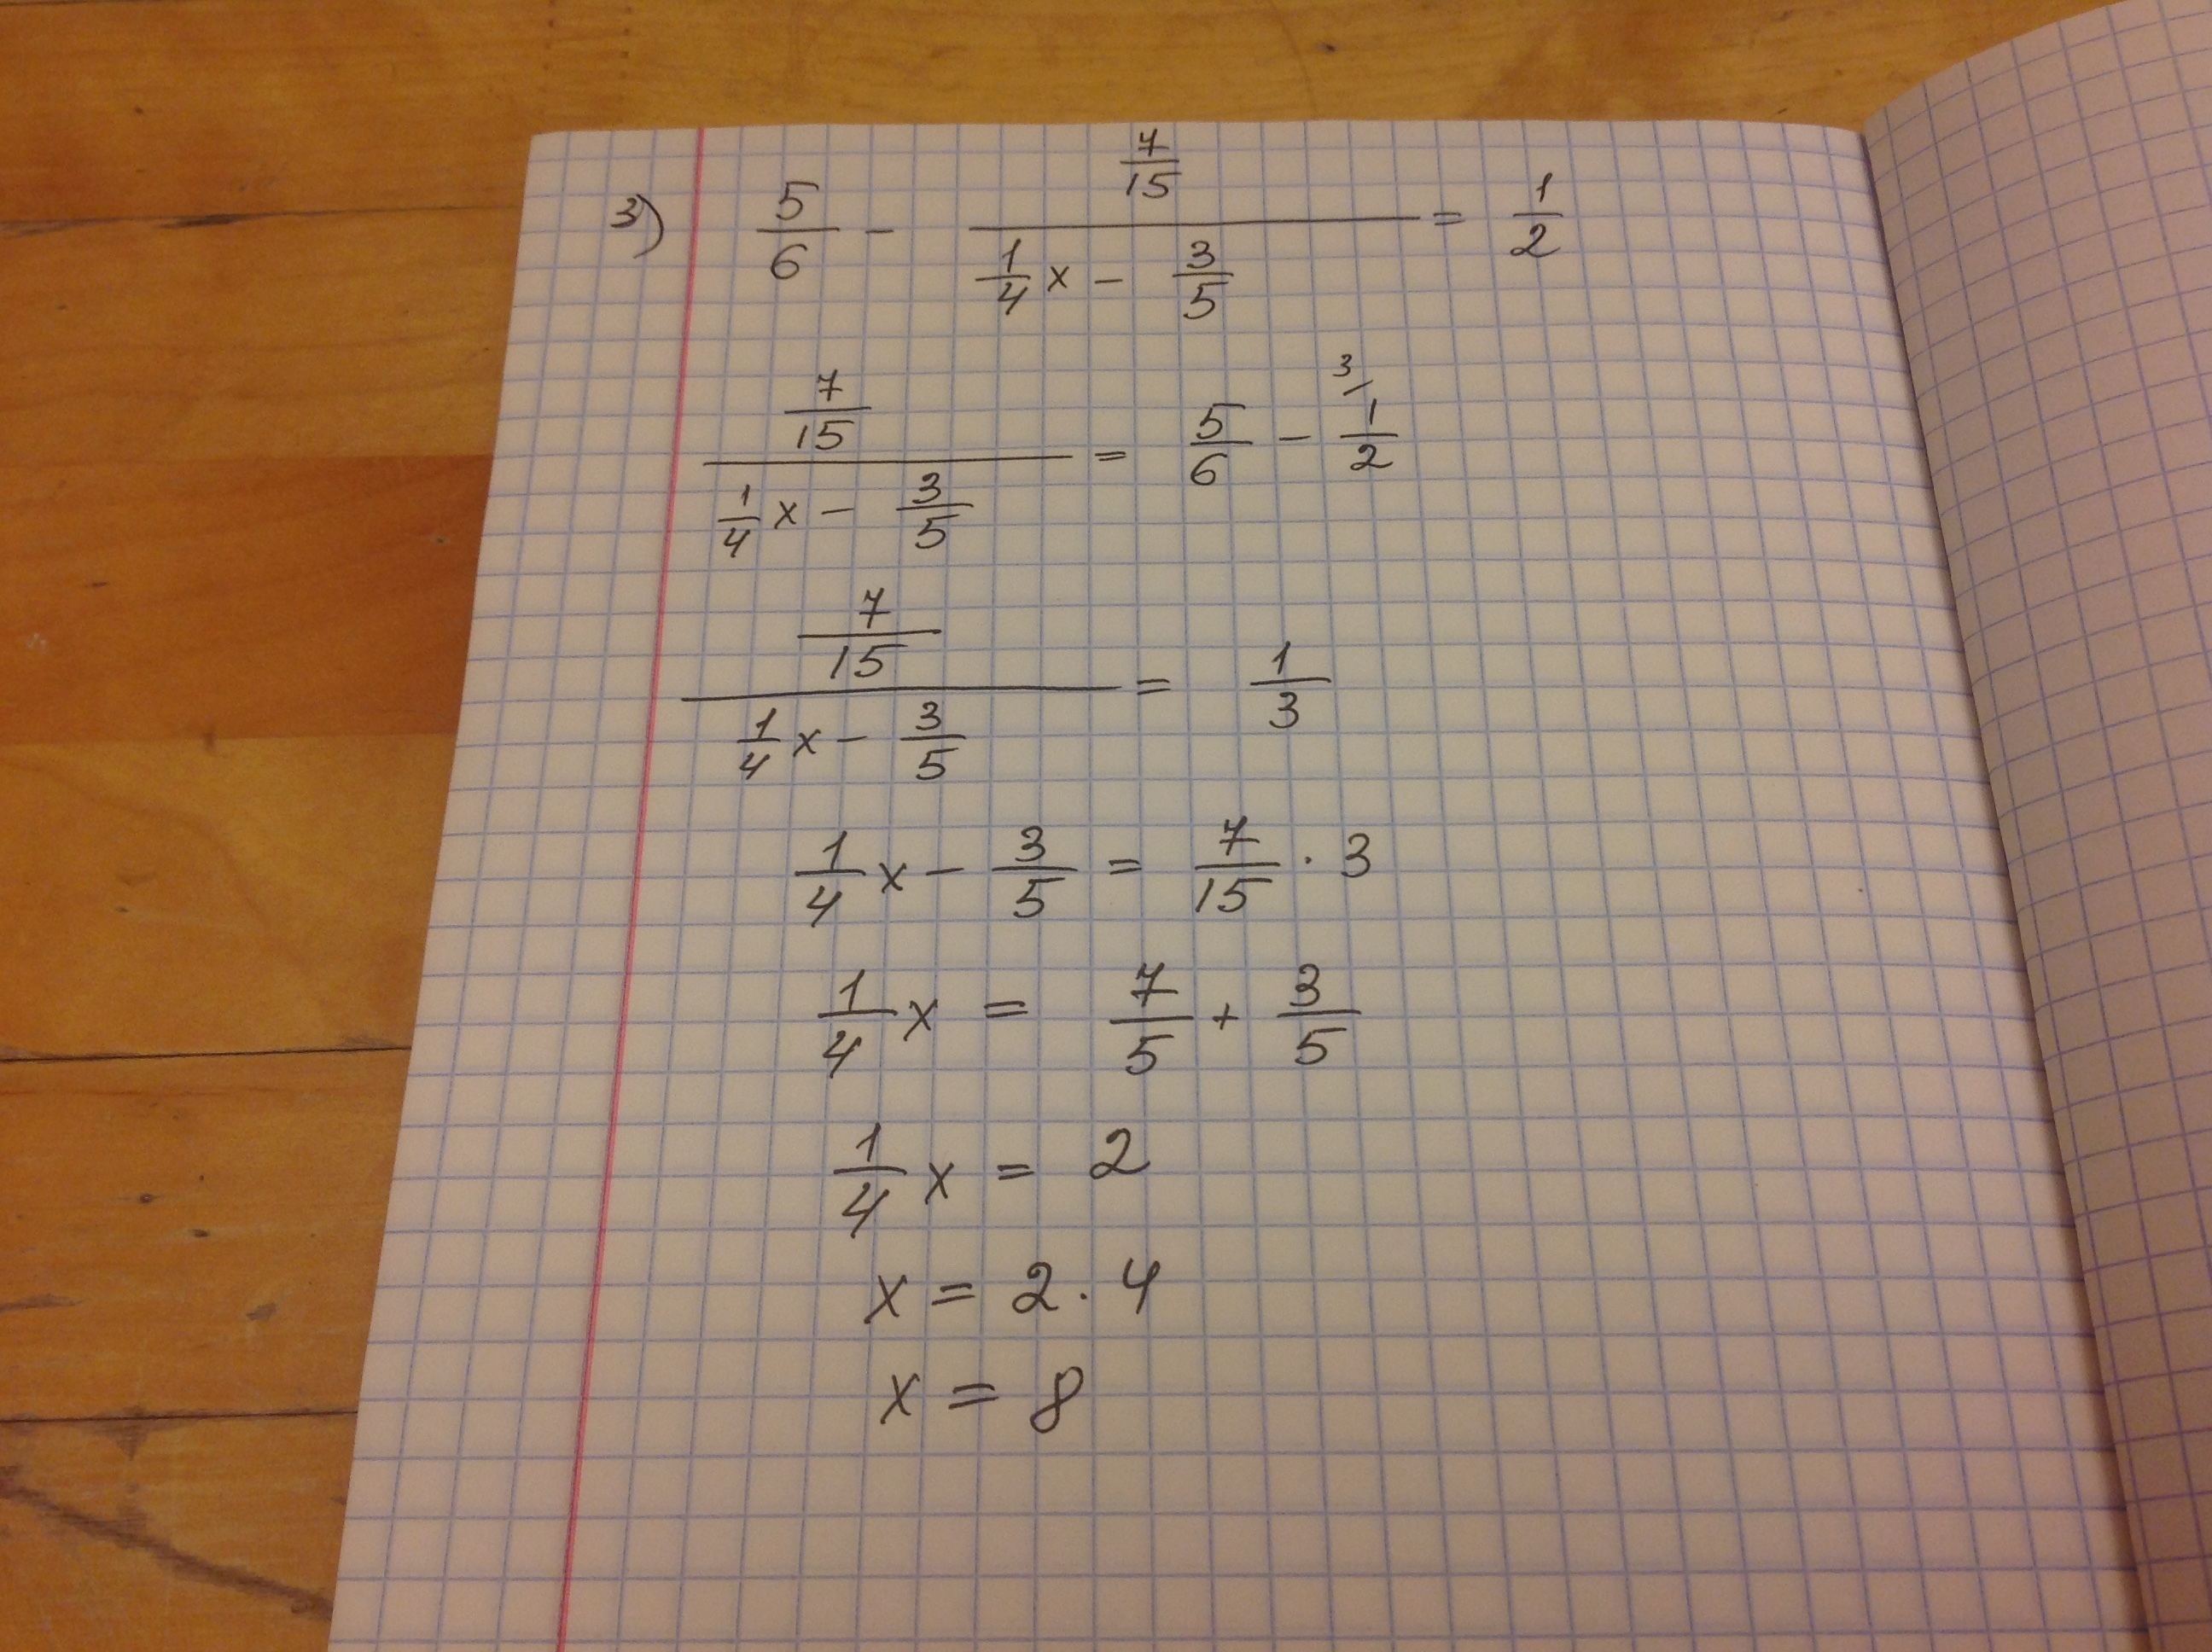 3) 5/6 - (7/15)/(1/4 x - 3/5) = 1/2
(7/15)/(1/4 x - 3/5) = 5/6 - 3\ 1/2
(7/15)/(1/4 x - 3/5) = 1/3
1/4 x - 3/5 = 7/15 · 3
1/4 x = 7/5 + 3/5
1/4 x = 2
x = 2 · 4
x = 8